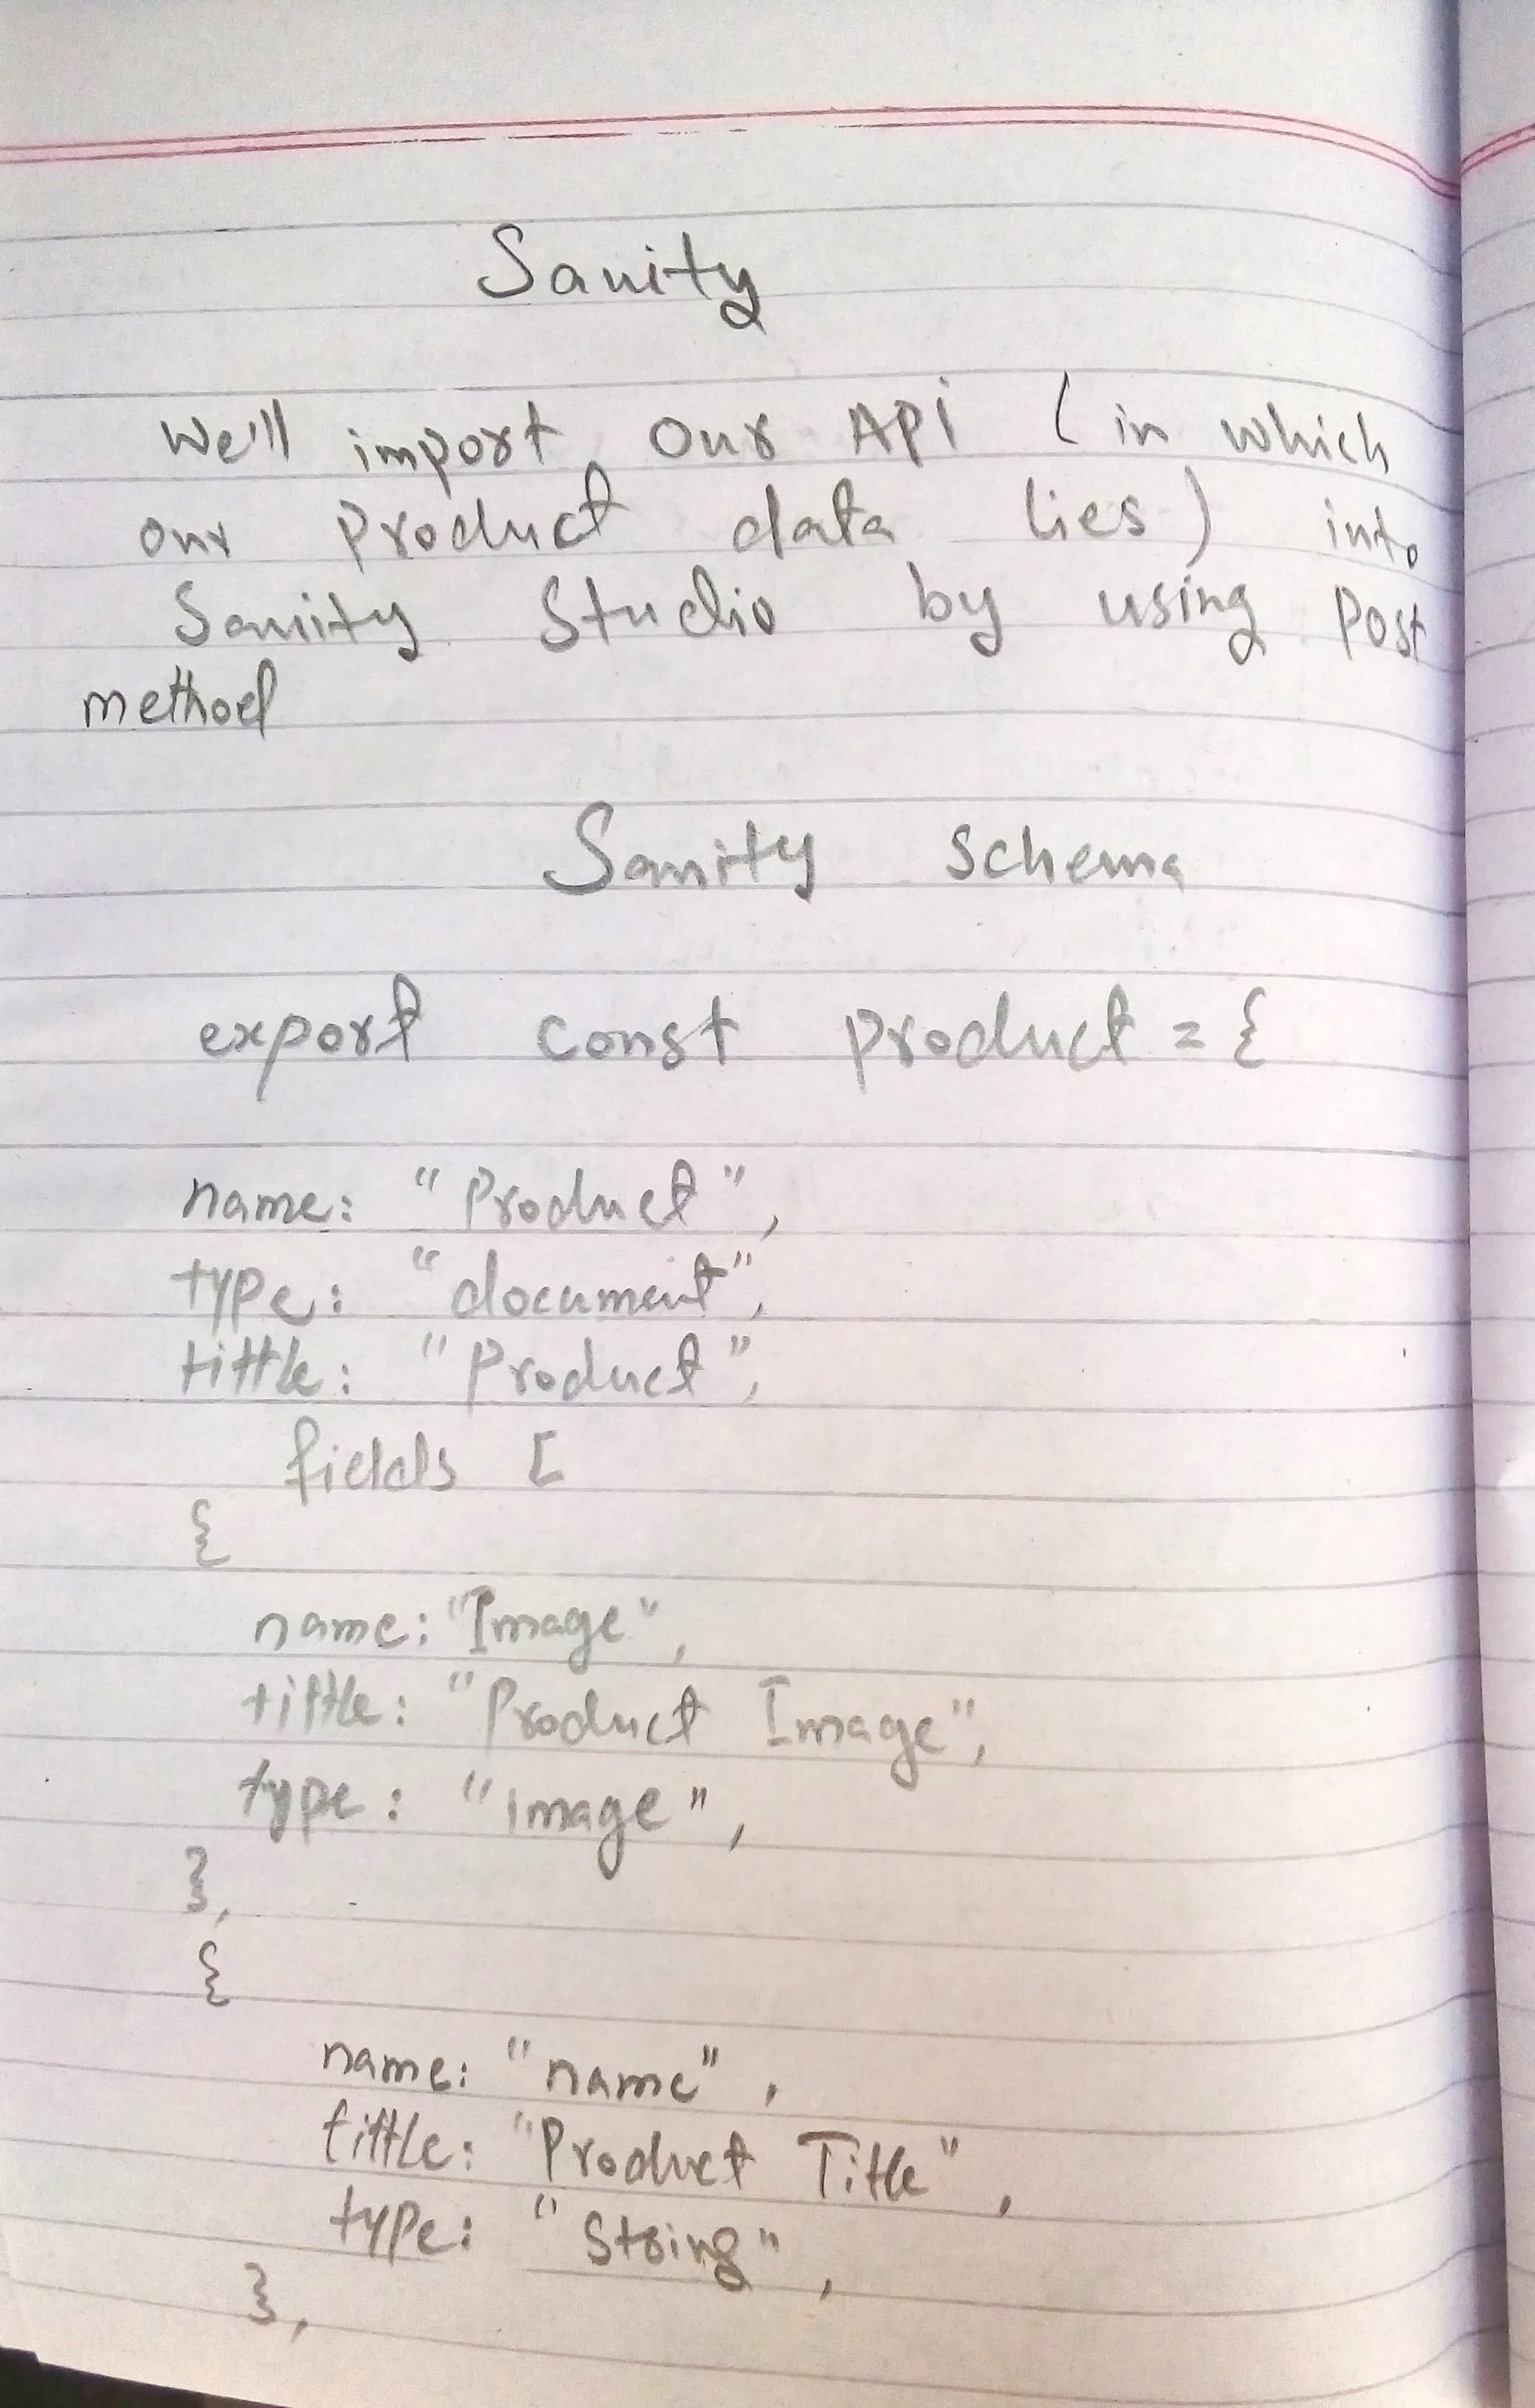 Sanity
We'll import our API (in which
our product data lies) into
Sanity Studio by using Post
method
Sanity Schema
export const product = {
name: "Product",
type: "document",
tittle: "Product",
fields [
{
name: "Image",
tittle: "Product Image",
type: "image",
},
{
name: "name",
tittle: "Product Title",
type: "String",
},